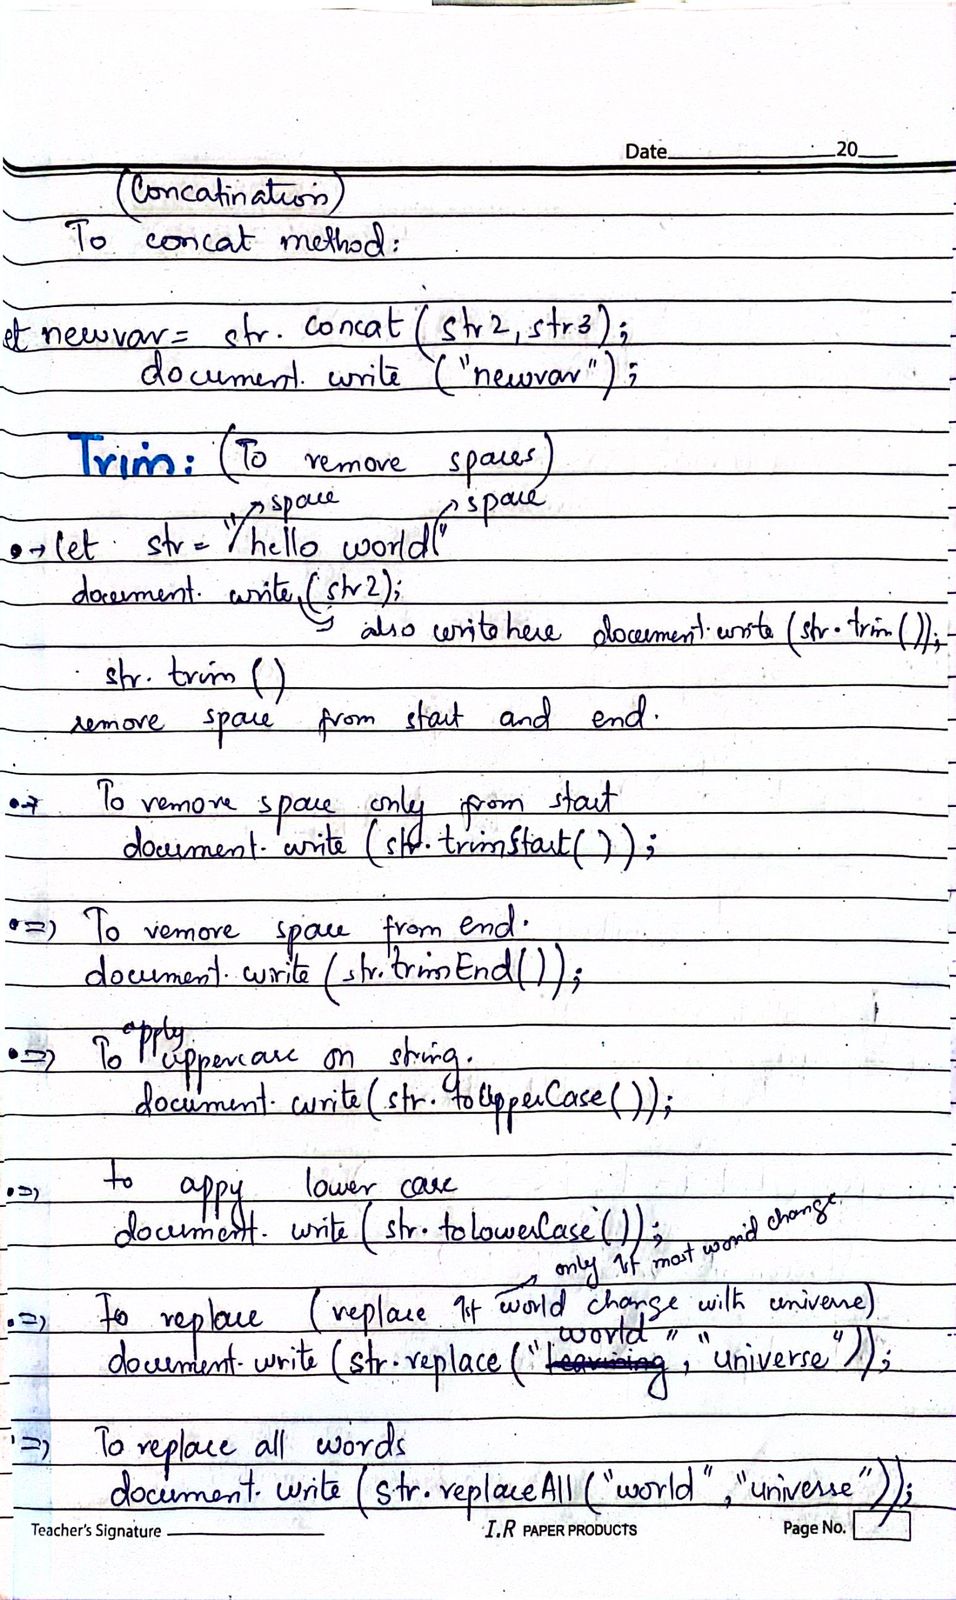 Date 20
(Concatination)
To concat method:
et newvar = str. concat (str2, str3);
document. write ("newvar");
Trim: (To remove spaces)
→ space → space
•→ let str = " hello world "
document. write (str2);
→ also write here document.write (str.trim());
str. trim ()
remove space from start and end.
•→ To remove space only from start
document. write (str.trimStart());
•=> To remove space from end.
document. write (str.trimEnd());
•=> To apply uppercase on string.
document. write (str. toUpperCase());
•=> to appy lower case
document. write (str. toLowerCase());
→ only 1st most word change
•=> To replace (replace 1st world change with universe)
document. write (str.replace ("world", "universe"));
•=> To replace all words
document. write (str.replaceAll ("world", "universe"));
Teacher's Signature I.R PAPER PRODUCTS Page No.